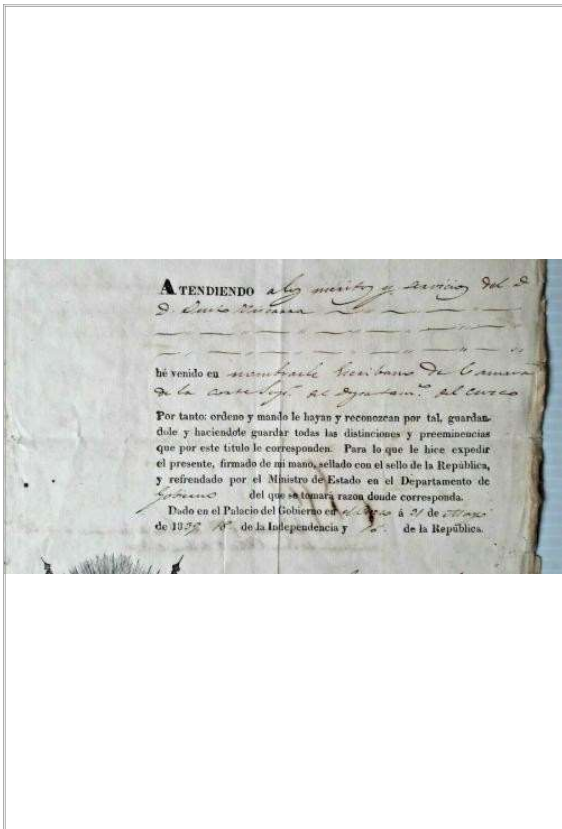 ATENDIENDO a los meritos y servicios del D
D.
hé venido en nombrarle Escribano de Camara
de la Corte Supr. del Departam.to del Cuzco
Por tanto: ordeno y mando le hayan y reconozcan por tal, guardan-
dole y haciendole guardar todas las distinciones y preeminencias
que por este titulo le corresponden. Para lo que le hice expedir
el presente, firmado de mi mano, sellado con el sello de la República,
y refrendado por el Ministro de Estado en el Departamento de
Gobierno del que se tomará razon donde corresponda.
Dado en el Palacio del Gobierno en el Cuzco á 21 de Mayo
de 1839 de la Independencia y de la República.